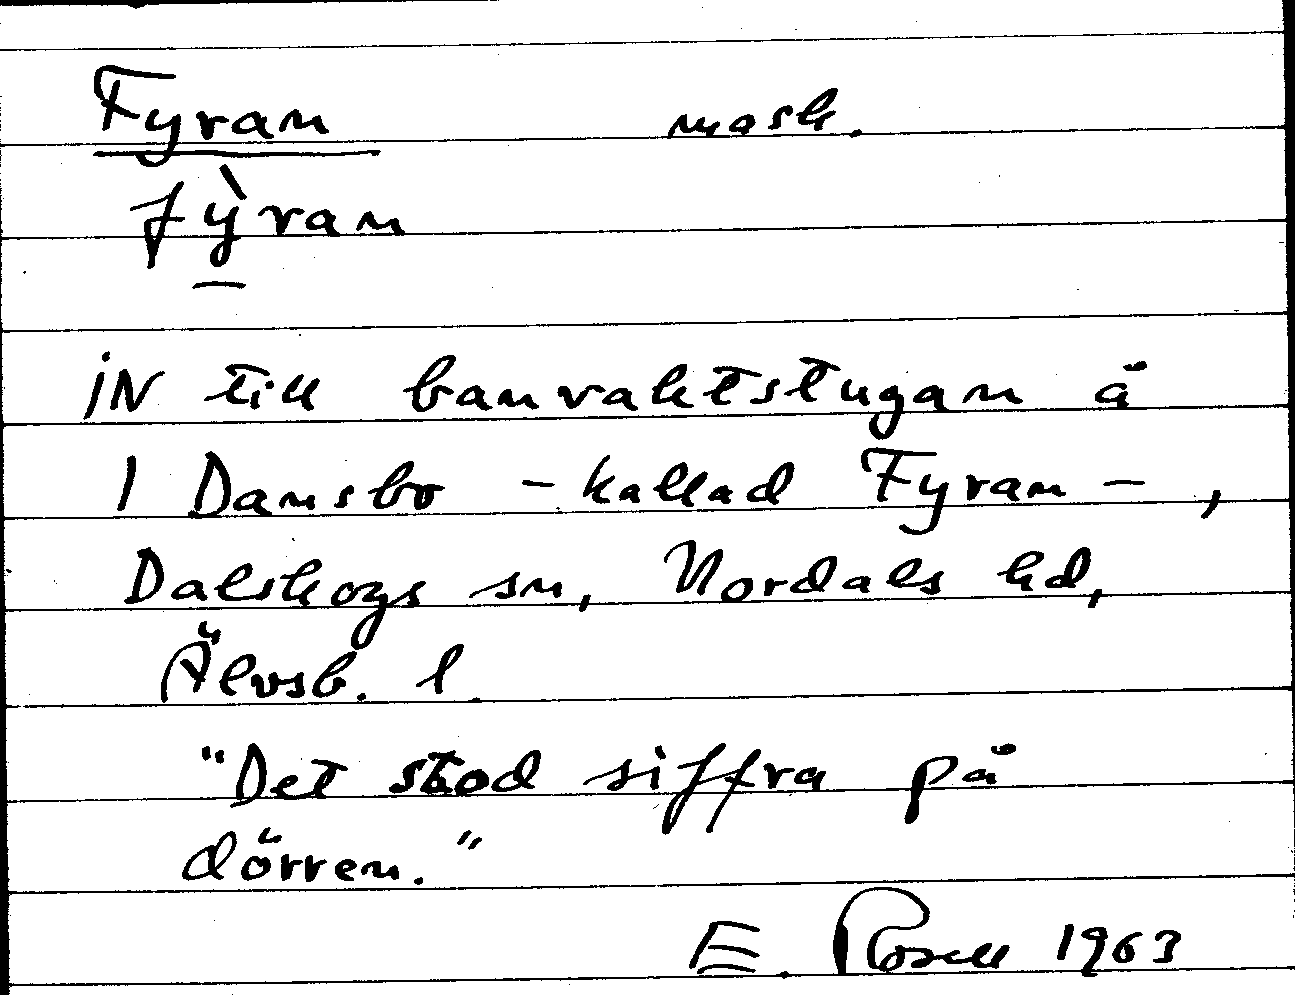 Fyran mask.
fỳ̠ran
iN till banvaktstugan å
1 Dansbo - kallad Fyran -,
Dalskogs sn, Nordals hd,
Älvsb. l.
"Det stod siffra på
dörren."
E. Rosell 1963